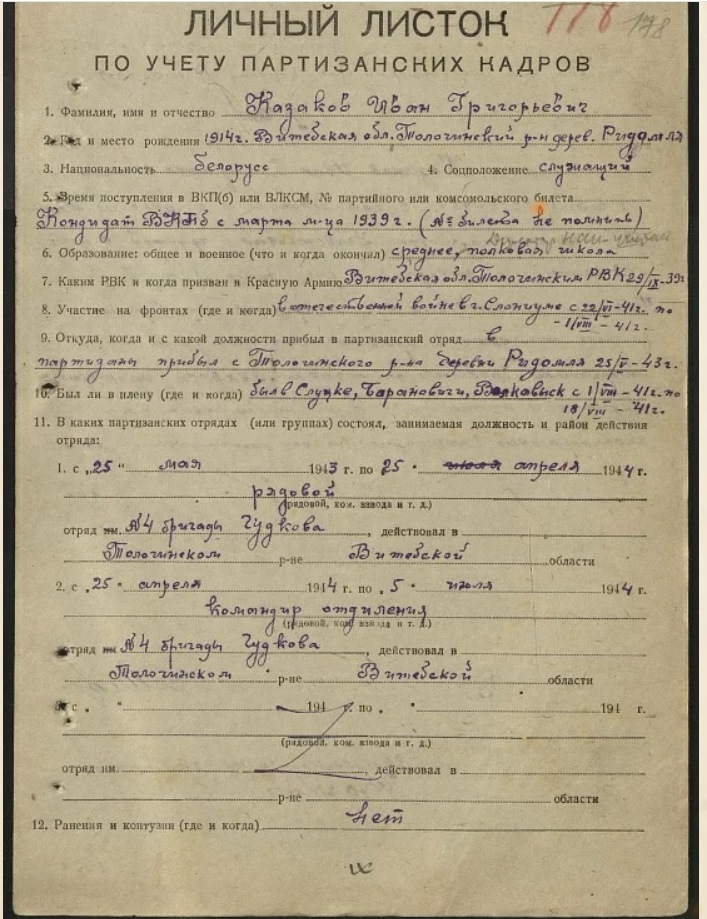 ЛИЧНЫЙ ЛИСТОК 178
ПО УЧЕТУ ПАРТИЗАНСКИХ КАДРОВ
1. Фамилия, имя и отчество Казаков Иван Григорьевич
2. Год и место рождения 1914г. Витебская обл. Толочинский р-н дерев. Ридомля
3. Национальность белорусс 4. Соцположение служащий
5. Время поступления в ВКП(б) или ВЛКСМ, № партийного или комсомольского билета
Кондидат ВКПб с марта м-ца 1939 г. (№ билета не помнить)
6. Образование: общее и военное (что и когда окончил) среднее, полковая школа
7. Каким РВК и когда призван в Красную Армию Витебская обл. Толочинским РВК 29/IX-39г
8. Участие на фронтах (где и когда) в отечественной войне в г. Слониме с 22/VI-41г. по
- 1/VIII - 41г.
9. Откуда, когда и с какой должности прибыл в партизанский отряд в
партизаны прибыл с Толочинского р-на деревни Ридомля 25/V-43г.
10. Был ли в плену (где и когда) был в Слуцке, Барановичи, Волкавыск с 1/VIII-41г. по
18/VIII - 41г.
11. В каких партизанских отрядах (или группах) состоял, занимаемая должность и район действия
отряда:
1. с „25" мая 1943 г. по 25 " апреля 1944 г.
рядовой
(рядовой, ком. взвода и т. д.)
отряд им. №4 бригады Чудкова, действовал в
Толочинском р-не Витебской области
2. с „25 " апреля 1944 г. по „ 5 " июля 1944 г.
командир отдиления
(рядовой, ком. взвода и т. д.)
отряд им №4 бригады Чудкова, действовал в
Толочинском р-не Витебской области
3. с „ " 194 г. по „ " 194 г.
(рядовой, ком. взвода и т. д.)
отряд им. , действовал в
р-не области
12. Ранения и контузии (где и когда) нет